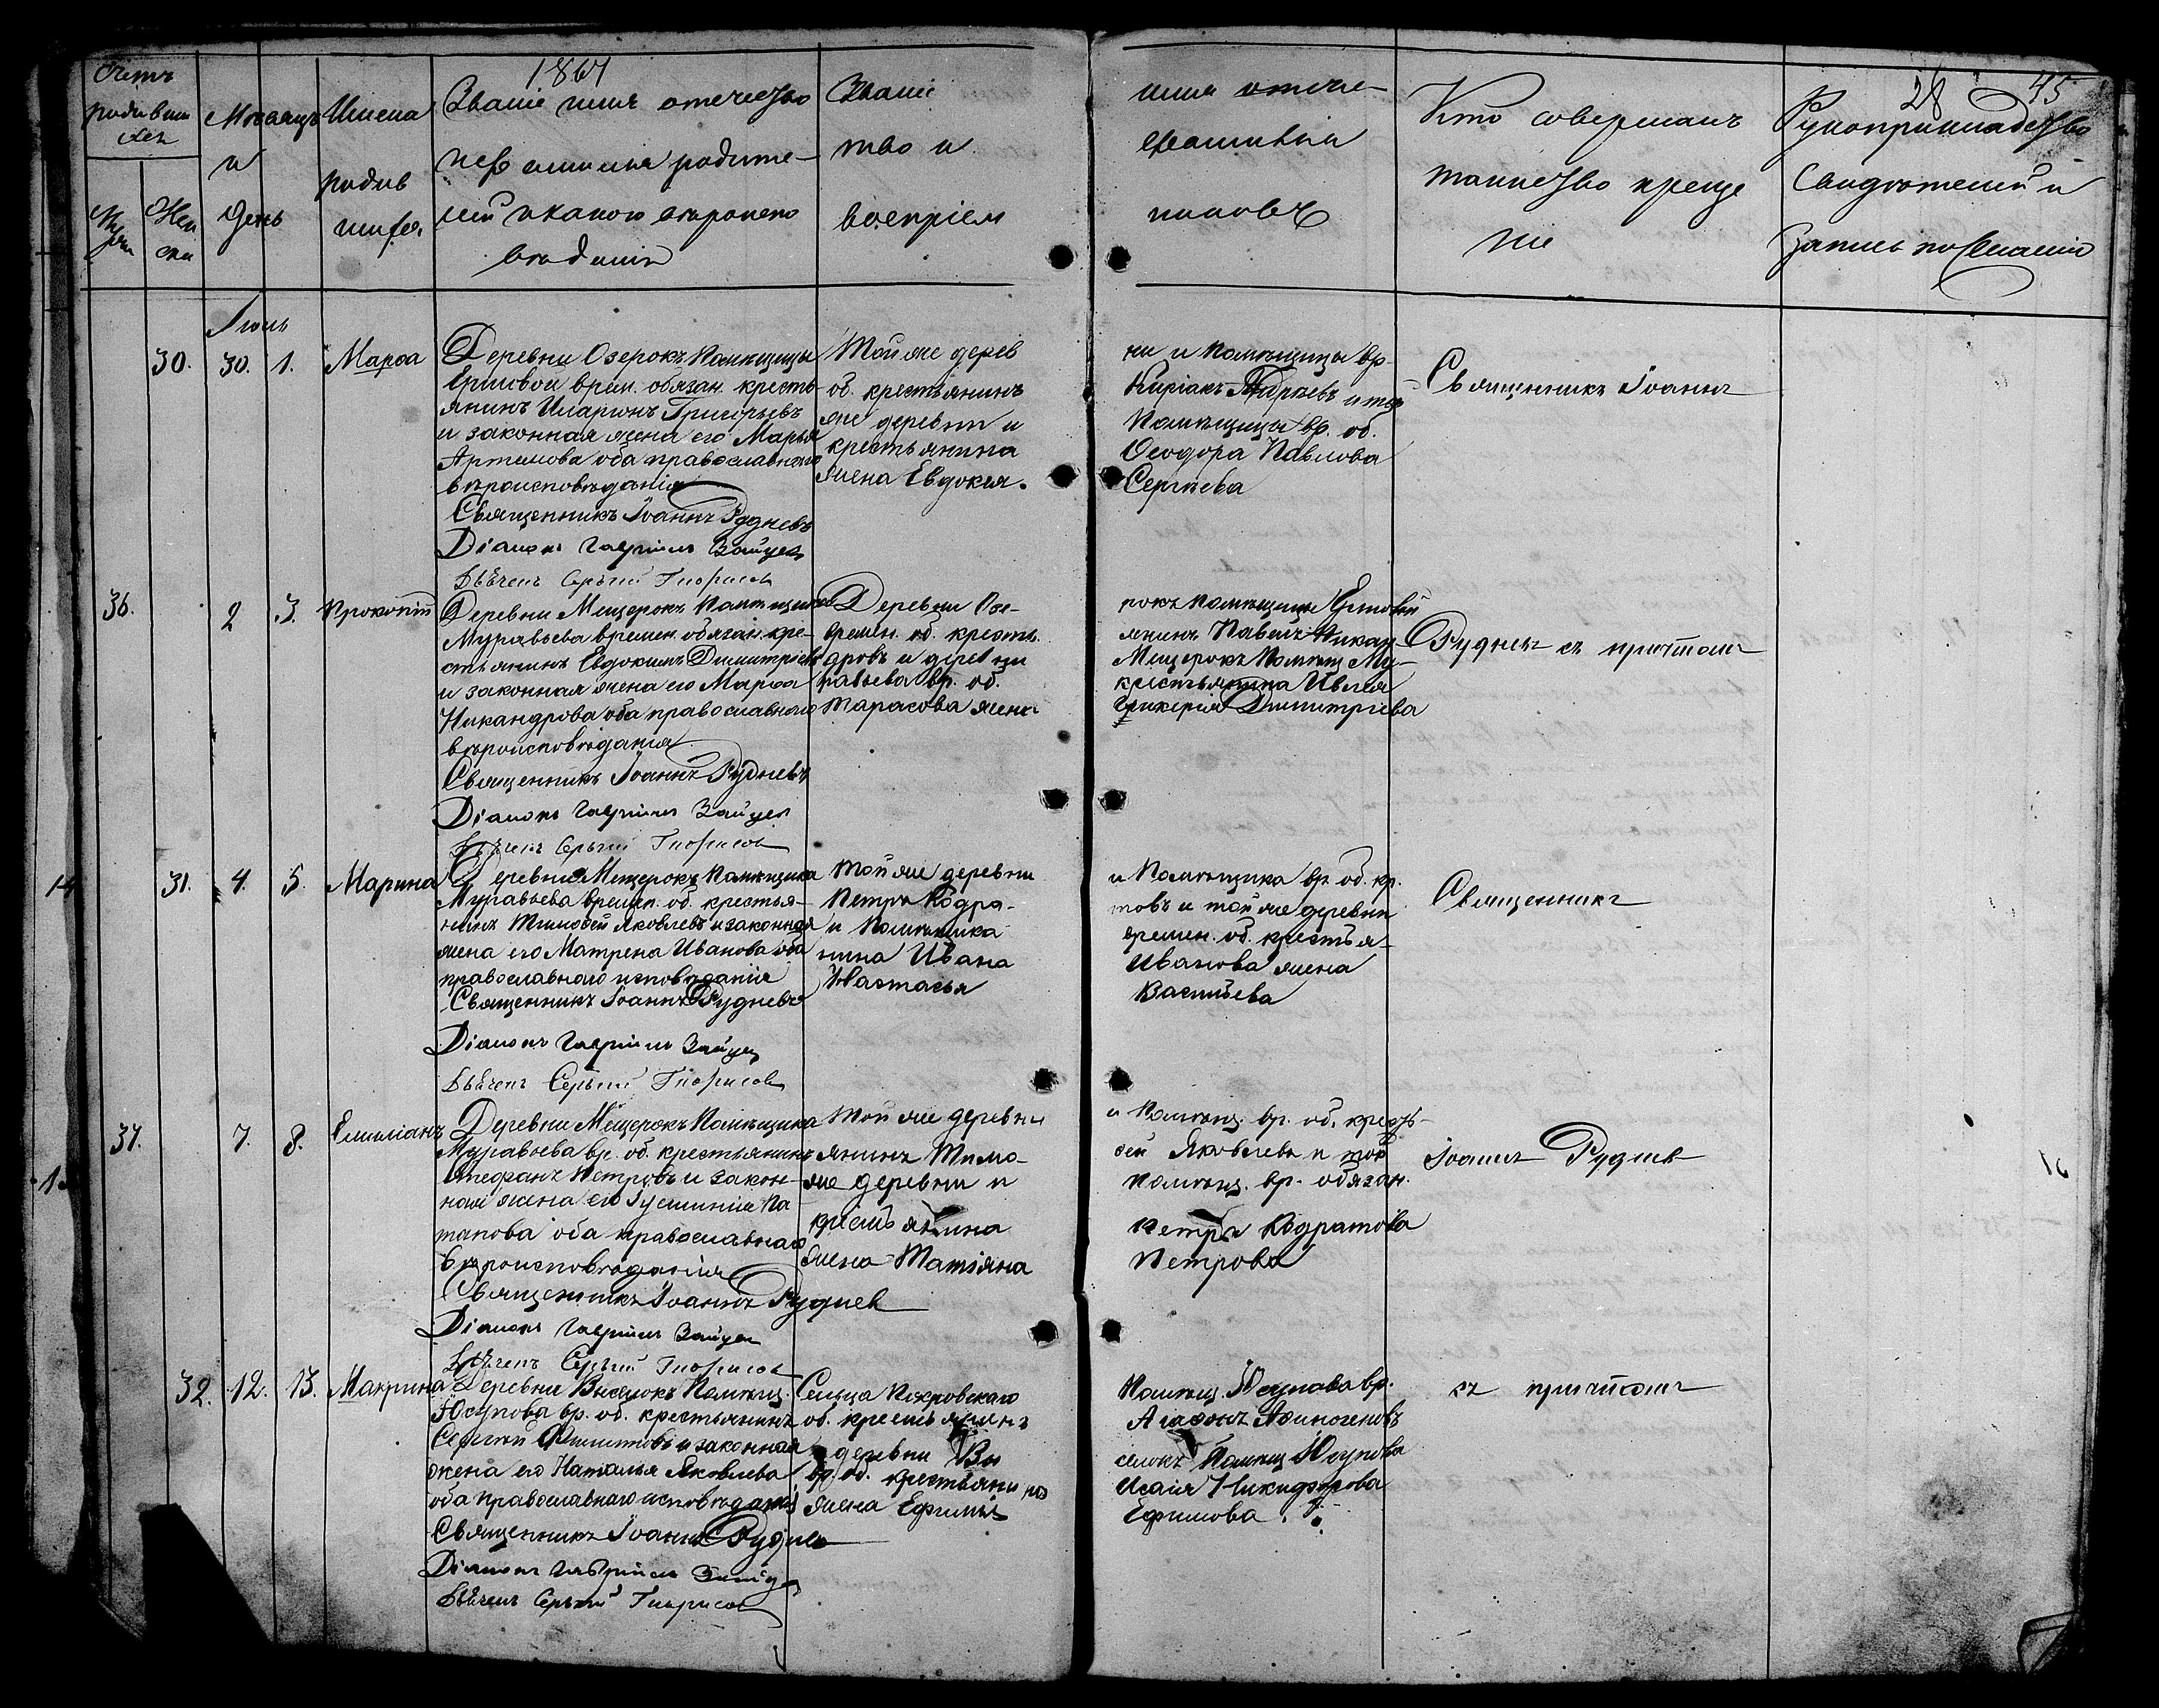 1864
28 45
Счетъ родившихся
Мѣсяцъ и день
Имена родившихся
Званіе имя отечество
и фамилія родите-
лей и какого вѣроиспо
вѣданія
Званіе имя отече-
ство и фамилія
воспріем никовъ
Кто совершалъ
таинство креще
ніе
Рукоприкладство
Свидѣтелей и
Запись по желанію
Іюнь
30. 30. 1. Марѳа
Деревни Озерокъ Помѣщицы
Ермовой врем. обязан. кресть-
янинъ Иларіонъ Григорьевъ
и законная жена его Марья
Артемова оба православнаго
вѣроисповѣданія
Священникъ Іоаннъ Рудневъ
Діаконъ Гавріилъ Зайцев
Дьячекъ Сергѣй
Той же дерев ни и помѣщицы вр.
об. крестьянинъ Киріакъ
же деревни и Помѣщицы вр. об.
крестьянина Ѳеодора Павлова
жена Евдокея Сергѣева
Священникъ Іоаннъ
36. 2 3. Прокопій
Деревни Мещерокъ Помѣщика
Муравьева времен. обязан. кре-
стьянинъ Евдокимъ Димитріевъ
и законная жена его Марѳа
Никандрова оба православнаго
вѣроисповѣданія
Священникъ Іоаннъ Рудневъ
Діаконъ Гавріилъ Зайцев
Дьячекъ Сергѣй
Деревни Озе- рокъ помѣщицы Ермовой
времен. об. кресть- янинъ Павелъ Никан
дровъ и деревни Мещерокъ Помѣщ. Му-
равьева вр. об. крестьянина Ивлея
Тарасова жена Гликерія Димитріева
Рудневъ съ причтомъ
14
31. 4. 5. Марина
Деревни Мещерокъ Помѣщика
Муравьева времен. об. крестья-
нинъ Тимоѳей Яковлевъ и законная
жена его Матрена Иванова оба
православнаго исповѣданія
Священникъ Іоаннъ Рудневъ
Діаконъ Гавріилъ Зайцев
Дьячекъ Сергѣй
Той же деревни и Помѣщика вр. об. кр.
Петръ Кодра- товъ и той же деревни
и Помѣщика времен. об. крестья-
нина Ивана Иванова жена
Настасья Васильева
Священникъ
37. 7. 8. Емиліанъ
Деревни Мещерокъ Помѣщика
Муравьева вр. об. крестьянинъ
Стефанъ Петровъ и закон-
ная жена его Іустинія По
тапова оба православнаго
вѣроисповѣданія
Священникъ Іоаннъ Руднев
Діаконъ Гавріилъ Зайцев
Дьячекъ Сергѣй
Той же деревни и Помѣщ. вр. об. кресть-
янинъ Тимо- ѳей Яковлевъ и той
же деревни и Помѣщ. вр. обязан.
крестьянина Петра Кодратова
жена Татіяна Петрова
Іоаннъ Руднев
32. 12. 13. Макрина
Деревни Выселокъ Помѣщ.
Юсупова вр. об. крестьянинъ
Сергѣй Филиповъ и законная
жена его Наталья Яковлева
оба православнаго исповѣданія
Священникъ Іоаннъ Руднев
Діаконъ Гавріилъ Зайцев
Дьячекъ Сергѣй
Сельца Покровскаго Помѣщ. Юсупова вр.
об. крестьянинъ Агаѳонъ Аѳиногеновъ
деревни Вы селокъ Помѣщ Юсупова
вр. об. крестьянина Исаія Никифорова
жена Ефимья Ефимова
съ причтомъ